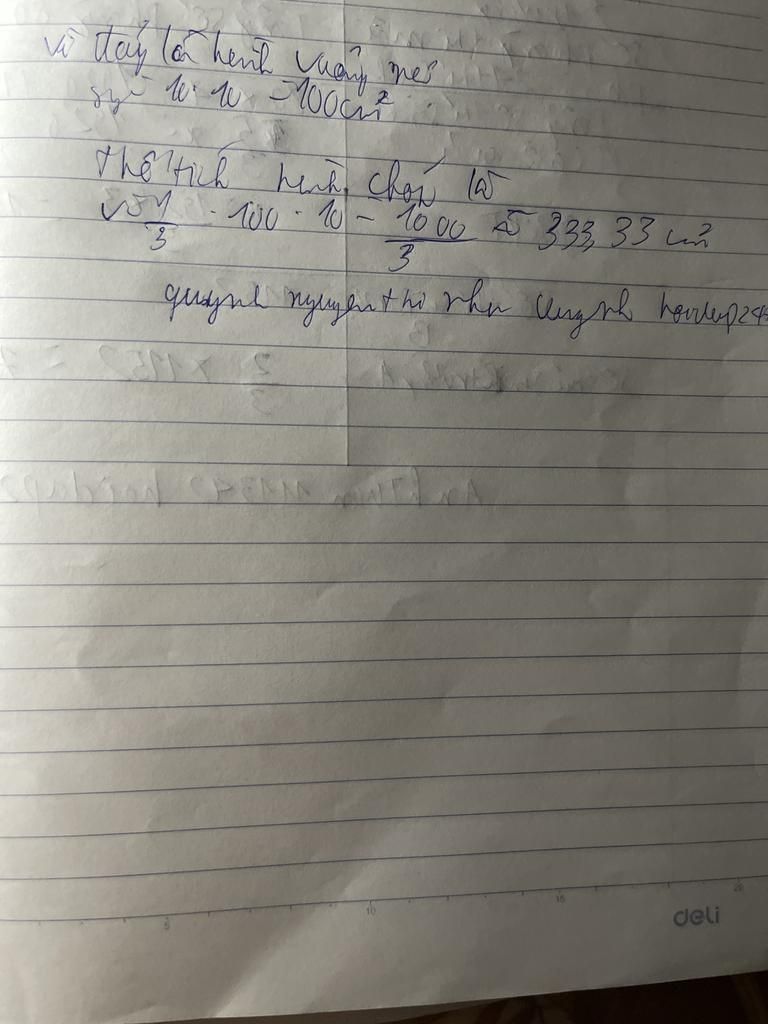 vì đáy là hình vuông nên
10 · 10 = 100cm²
thể tích hình chóp là
V = 1/3 · 100 · 10 = 1000/3 ≈ 333,33 cm²
quynh nguyen thi nhu quynh hoidap24
deli
5 10 15 20